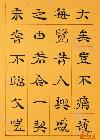 大矣豈不痛哉
每覽昔人興感
之由若合一契
未嘗不臨文嗟